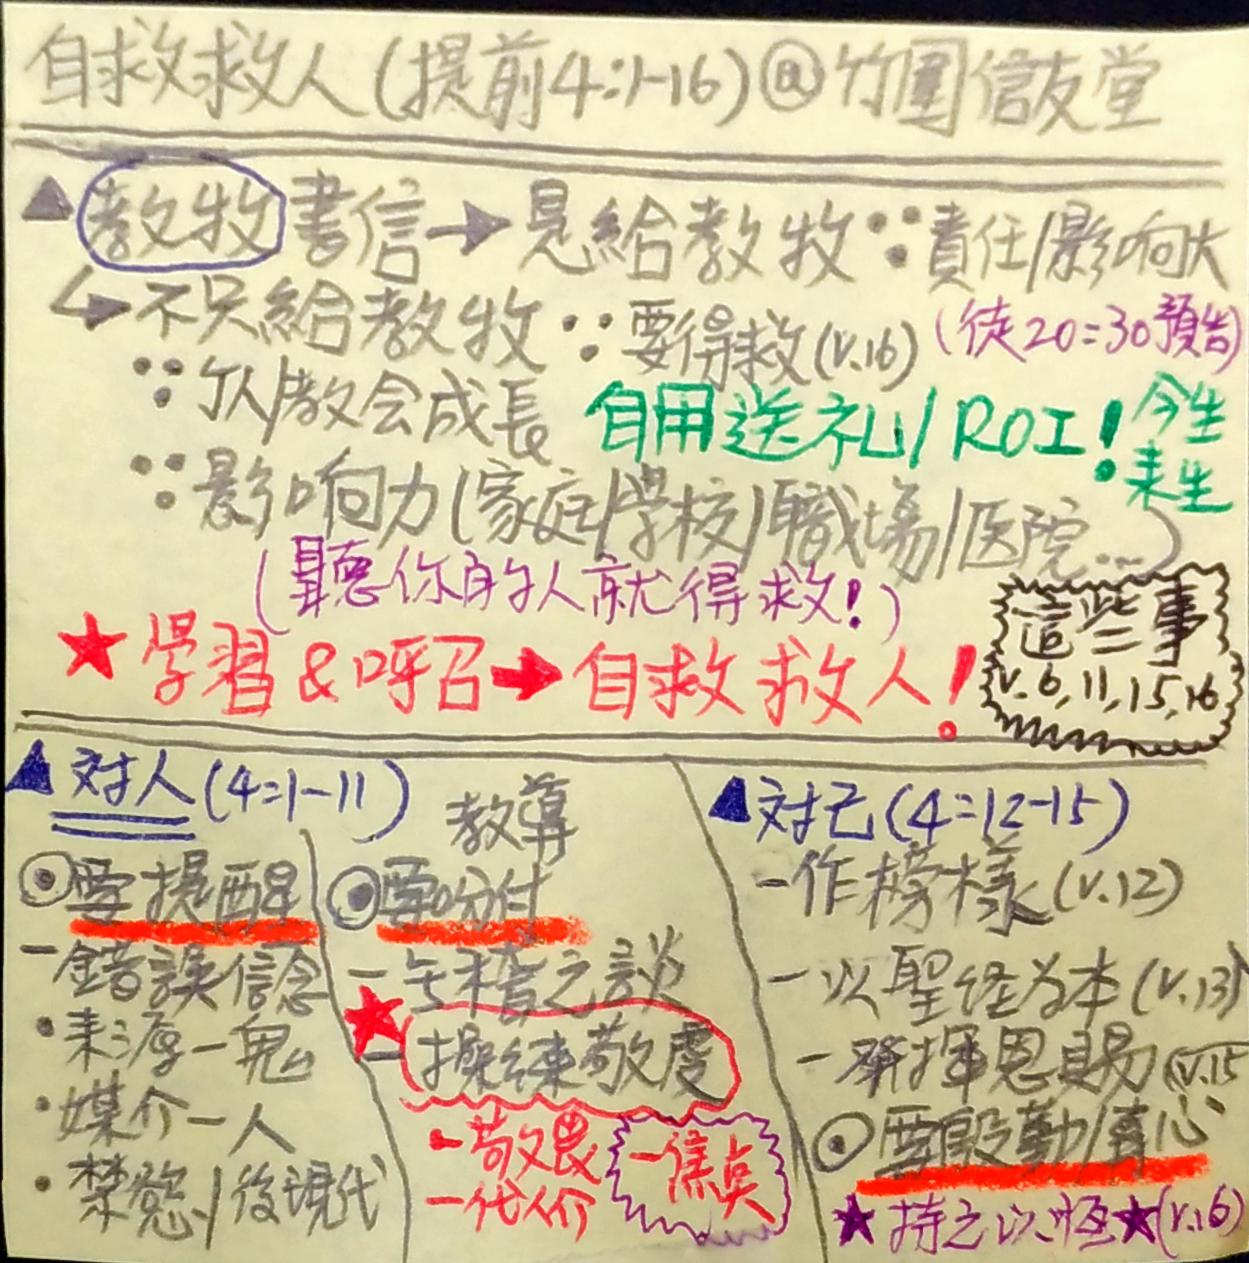 自救救人(提前4:1-16)@竹圍信友堂
▲教牧書信→是給教牧∵責任/影响大
↳不只給教牧∵要得救(v.16)(徒20=30預告)
∵个人/教会成長 自用送礼/ROI!今生
来生
∵影响力(家庭/学校/職場/医院...)
(聽你的人就得救!)
★学習&呼召→自救救人!
這些事
v.6,11,15,16
▲対人(4=1-11)
◉要提醒
-錯誤信念
•来源-鬼
•媒介-人
•禁慾/後現代
教導
◉要吩咐
-無稽之談
★-操練敬虔
-敬畏
-代价
-焦点
▲対己(4=12-15)
-作榜樣(v.12)
-以聖経為本(v.13)
-發揮恩賜(v.15
◉要殷勤/專心
★持之以恆★(v.16)